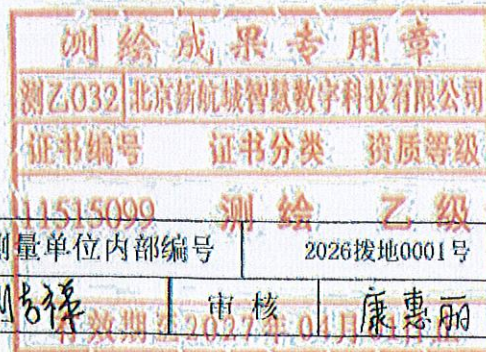 测绘成果专用章
测乙032 北京新航城智慧数字科技有限公司
证书编号 证书分类 资质等级
11515099 测绘 乙级
测量单位内部编号 2026拨地0001号
审核 康惠丽
有效期至2027年